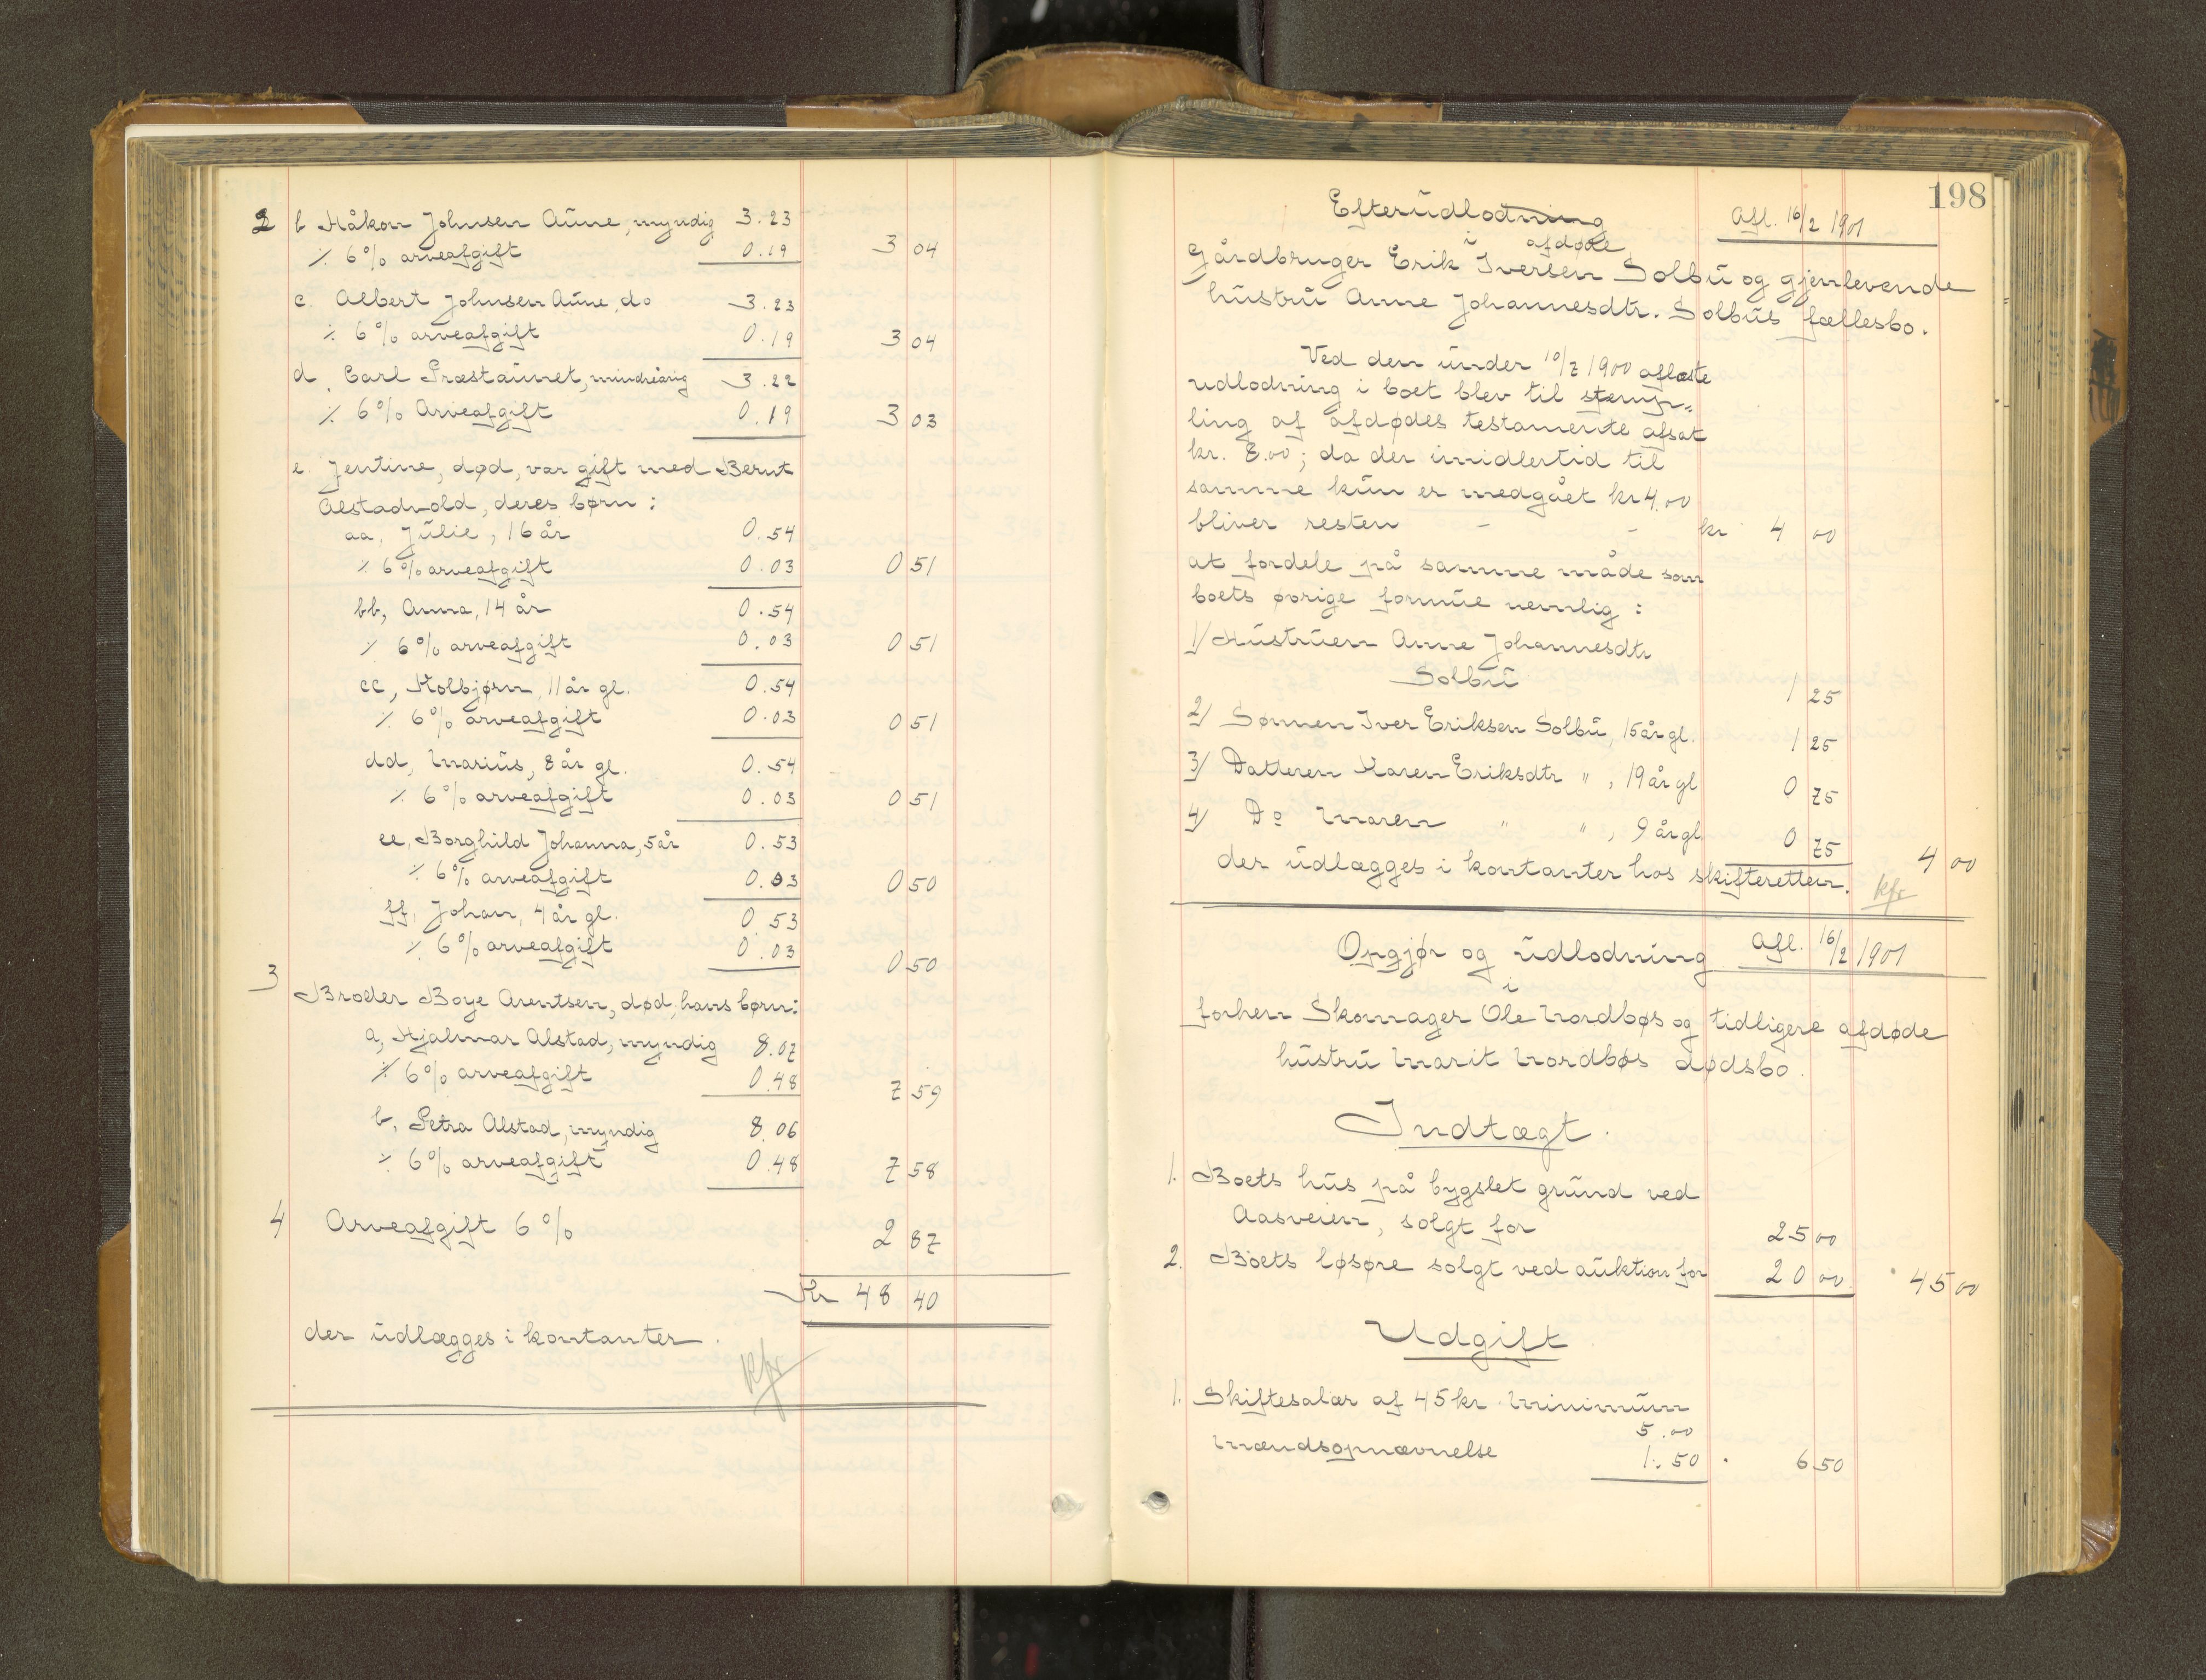 2 b Håkon Johnsen Aune, myndig 3.23
⁒ 6% arveafgift 0.19 3 04
c. Albert Johnsen Aune, do 3.23
⁒ 6% arveafgift 0.19 3 04
d. Carl Præstaunet, mindreårig 3.22
⁒ 6% Arveafgift 0.19 3 03
e. Jentine, død, var gift med Bernt
Alstadvold, deres børn:
aa. Julie, 16 år 0.54
⁒ 6% arveafgift 0.03 0 51
bb, Anna, 14 år 0.54
⁒ 6% arveafgift 0.03 0 51
cc, Kolbjørn, 11 år gl. 0.54
⁒ 6% arveafgift 0.03 0 51
dd, Marius, 8 år gl. 0.54
⁒ 6% arveafgift 0.03 0 51
ee, Borghild Johanna, 5 år 0.53
⁒ 6% arveafgift 0.03 0 50
ff, Johan, 4 år gl. 0.53
⁒ 6% arveafgift 0.03 0 50
3 Broder Boye Arentsen, død, hans børn:
a, Hjalmar Alstad, myndig 8.07
⁒ 6% arveafgift 0.48 7 59
b, Petra Alstad, myndig 8.06
⁒ 6% arveafgift 0.48 7 58
4 Arveafgift 6% 2 87
Kr 48 40
der udlægges i kontanter.
198
Efterudlodning Afl. 16/2 1901
i afdøde
Gårdbruger Erik Iversen Solbu og gjenlevende
hustru Anne Johannesdtr. Solbus fællesbo.
Ved den under 10/7 1900 aflæste
udlodning i boet blev til stemp=
ling af afdødes testamente afsat
kr. 8.00; da der imidlertid til
samme kun er medgået kr 4.00
bliver resten - - kr 4 00
at fordele på samme måde som
boets øvrige formue nemlig:
1/ Hustruen Anne Johannesdtr
Solbu 1 25
2/ Sønnen Iver Eriksen Solbu, 15 år gl. 1 25
3/ Datteren Karen Eriksdtr " , 19 år gl 0 75
4/ Do Maren " " , 9 år gl. 0 75
der udlægges i kontanter hos skifteretten. 4 00
Opgjør og udlodning Afl. 16/2 1901
i
forhen Skomager Ole Nordbøs og tidligere afdøde
hustru Marit Nordbøs dødsbo.
Indtægt.
1. Boets hus på bygslet grund ved
Aasveien, solgt for 25 00
2. Boets løsøre solgt ved auktion for 20 00. 45 00
Udgift
1. Skiftesalær af 45 kr. Minimum
5.00
Mændsopnævnelse 1.50 6 50